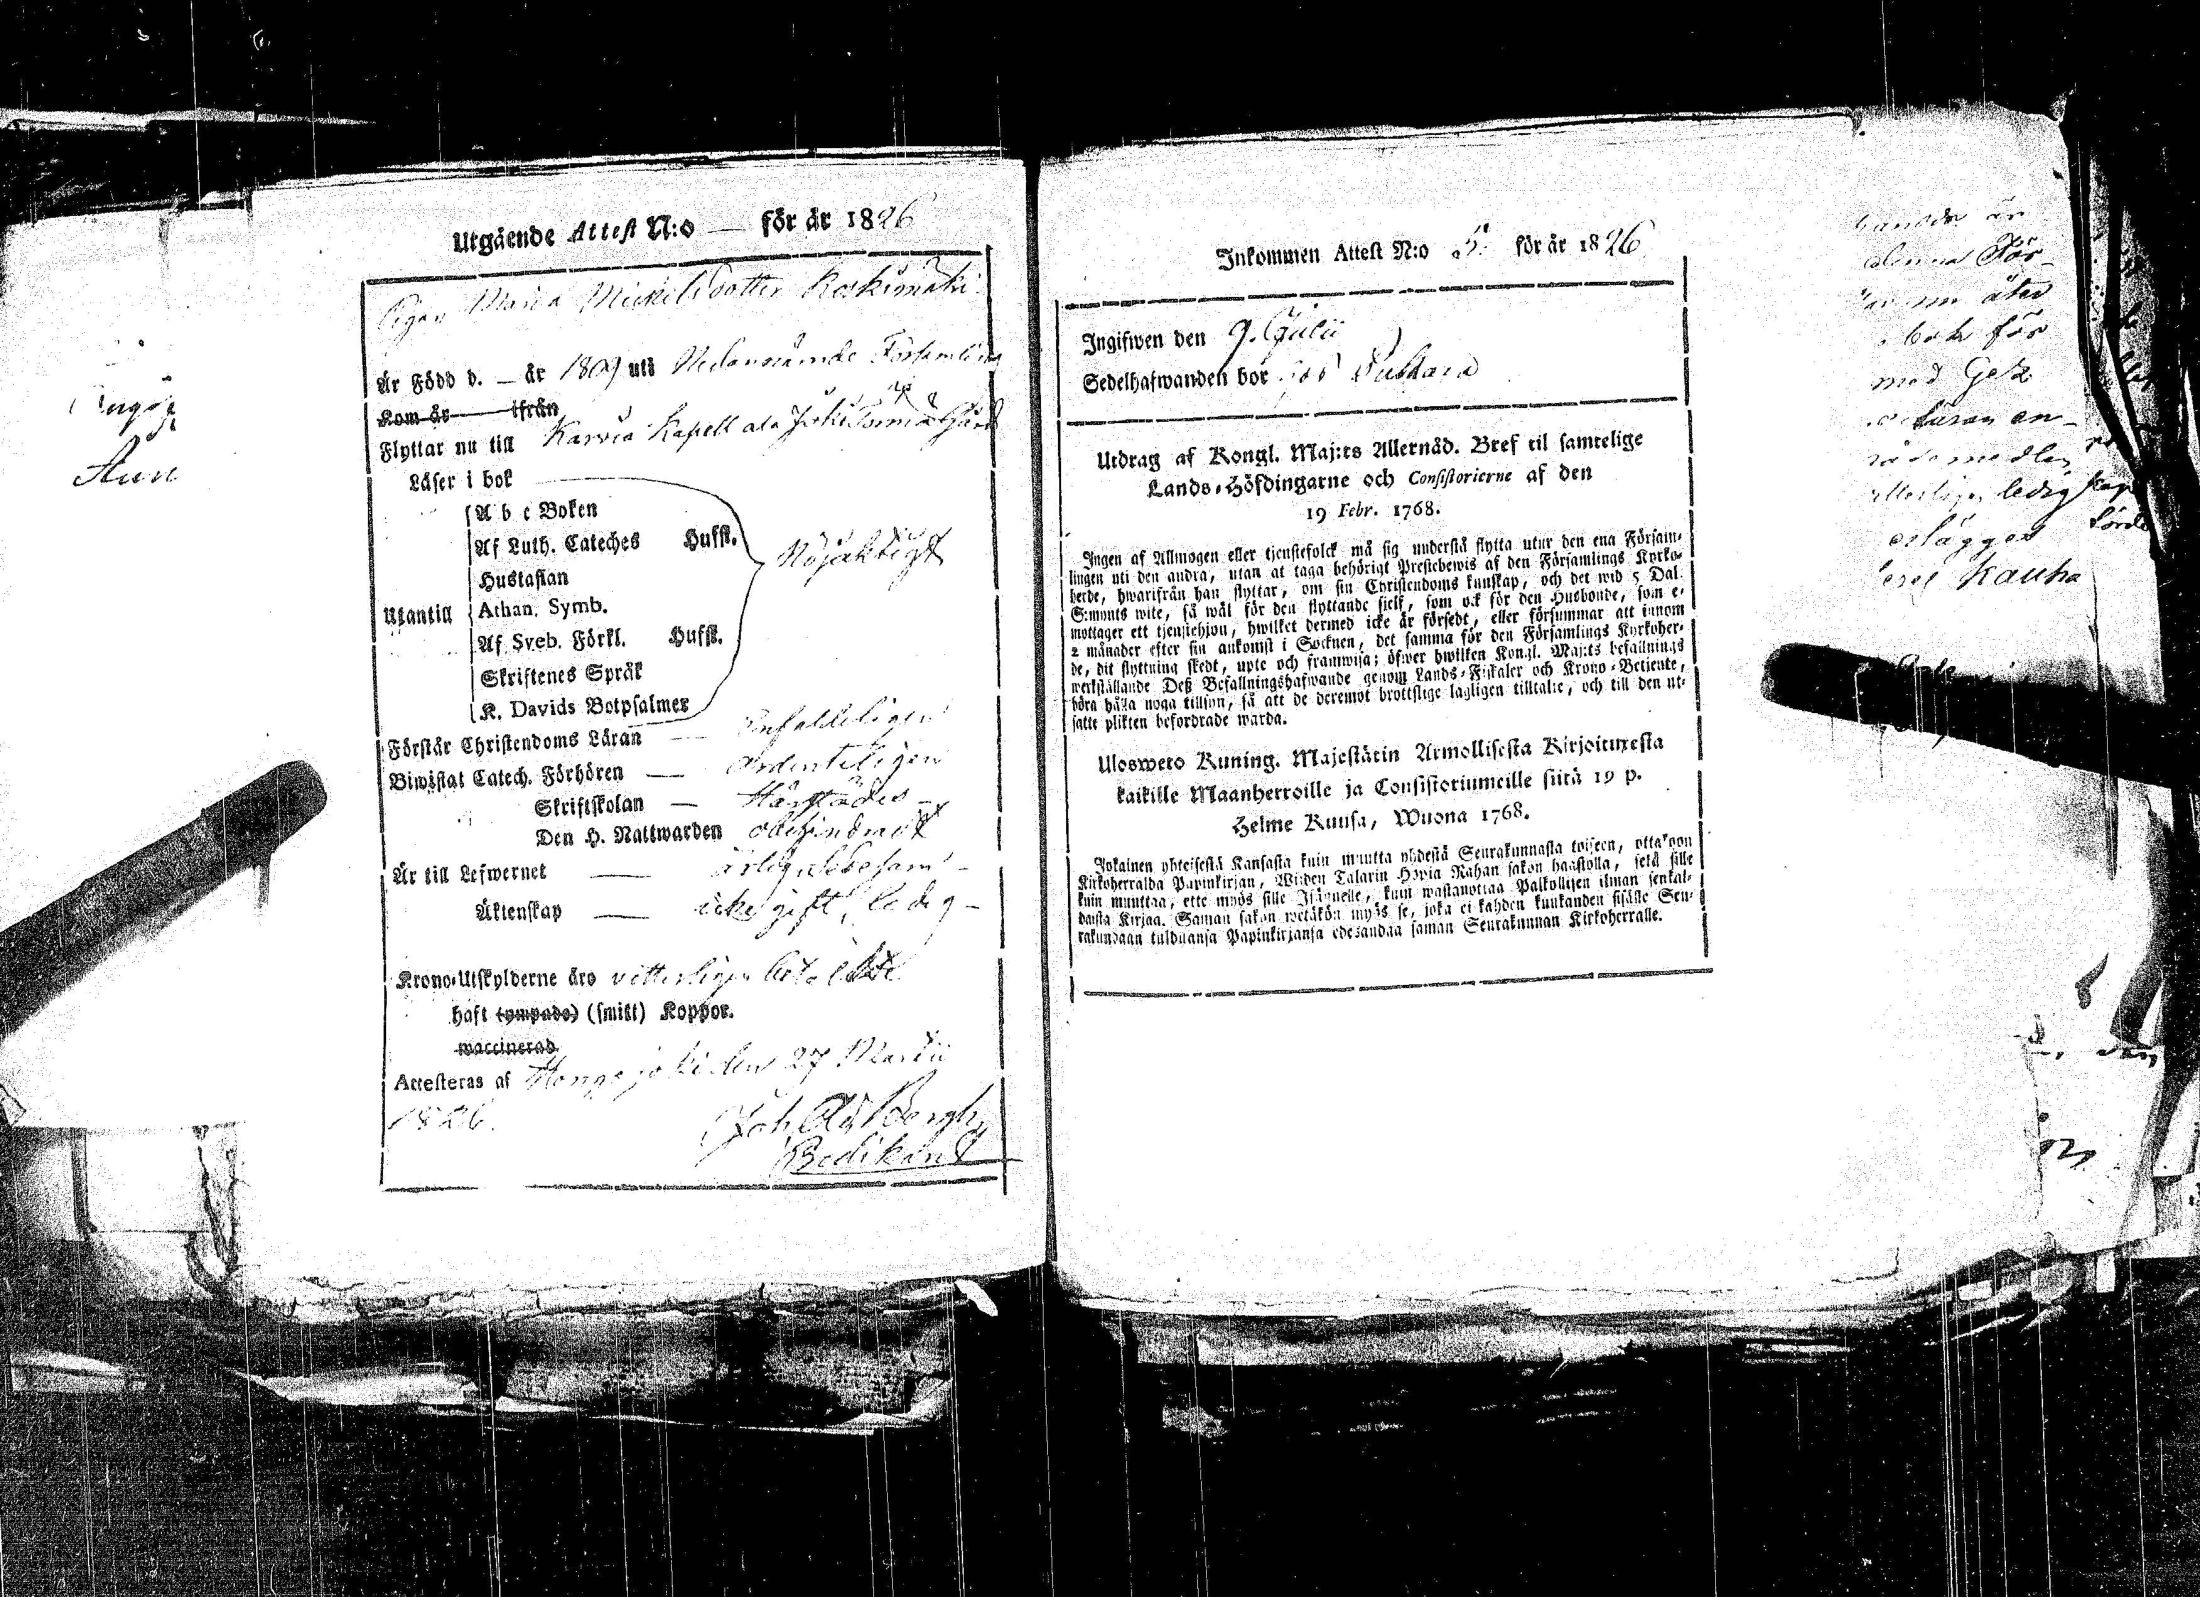 Utgående Attest N:o — för år 1826
Pigan Maria Mickelsdotter Koskimäki
Är Född d. — år 1809 uti Nedannämde Församling
Kom år — ifrån
Flyttar nu till Karvia Kapell och Gård
Läser i bok
Utantill
A b c Boken
Af Luth. Cateches Husst.
Hustaflan
Athan. Symb.
Af Sveb. Förkl. Husst.
Skriftenes Språk
K. Davids Botpsalmer
Nöjaktigt
Förstår Christendoms Läran — Enfaldeligen
Biwistat Catech. Förhören — Ordenteligen
Skriftskolan — Härstädes
Den H. Nattwarden obehindrad
Är till Lefwernet — ärlig
Äktenskap — icke gift, ledig —
Krono-Utskylderne äro vitterligen betalde
haft (ympade) (smitt) Koppor.
waccinerad
Attesteras af Hongojoki den 27 Martii
1826.
Joh Bergh
Predikant
Inkommen Attest N:o 5. för år 1826
Ingifwen den 9. Julii
Sedelhafwanden bor hos
Utdrag af Kongl. Maj:ts Allernåd. Bref til samtelige
Lands-Höfdingarne och Consistorierne af den
19 Febr. 1768.
Ingen af Allmogen eller tjenstefolck må sig understå flytta utur den ena Försam-
lingen uti den andra, utan at taga behörigt Prestebewis af den Församlings Kyrko-
herde, hwarifrån han flyttar, om sin Christendoms kunskap, och det wid 5 Dal.
S:mynts wite, så wäl för den flyttande sielf, som ock för den Husbonde, som e-
mottager ett tjenstehjon, hwilket dermed icke är försedt, eller försummar att innom
2 månader efter sin ankomst i Socknen, det samma för den Församlings Kyrkoher-
de, dit flyttning skedt, upte och framwisa; öfwer hwilken Kongl. Maj:ts befallnings
werkställande Deß Befallningshafwande genom Lands-Fiskaler och Krono-Betiente,
böra hålla noga tillsyn, så att de deremot brottslige lagligen tilltalte, och till den ut-
satte plikten befordrade warda.
Ulosweto Kuning. Majestätin Armollisesta Kirjoituxesta
kaikille Maanherroille ja Consistoriumeille siitä 19 p.
Helme Kuusa, Wuona 1768.
Jokainen yhteisestä Kansasta kuin muutta yhdestä Seurakunnasta toiseen, ottakoon
Kirkoherralda Papinkirjan, Wijden Talarin Hopia Rahan sakon haastolla, sekä sille
kuin muuttaa, ette myös sille Isännelle, kuin wastanottaa Palkollisen ilman senkal-
daista Kirjaa. Saman sakon wetäkön myös se, joka ei kahden kuukanden sisälle Seu-
rakundaan tulduansa Papinkirjansa edesandaa saman Seurakunnan Kirkoherralle.
denna För-
nu åter
bok för
med Get
läran en-
ledig
erlägges
Kauha